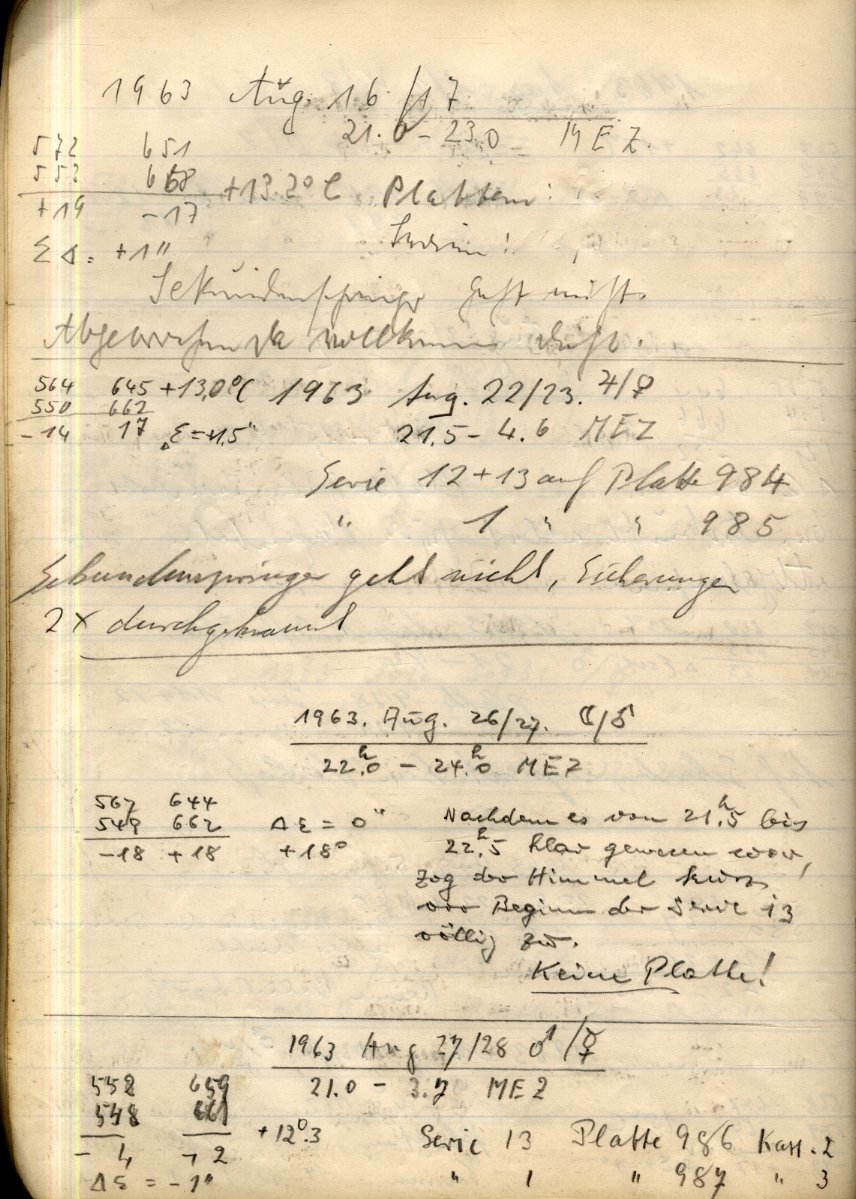 1963 Aug. 16/17
21.0 – 23.0 MEZ.
572 651
553 668 +13.2°C Platten:
+19 -17 Serien:
Σ Δ = +1"
Sekundenspringer geht nicht.
Abgebrochen da vollkommen dicht.
564 645 +13,0°C 1963 Aug. 22/23. ♃/♀
550 662
-14 17 ΔƐ=+1,5" 21.5 – 4.6 MEZ
Serie 12+13 auf Platte 984
" 1 " " 985
Sekundenspringer geht nicht, Sicherungen
2 x durchgebrannt
1963. Aug. 26/27. ☾/♂
22.ʰ0 – 24.ʰ0 MEZ
567 644
549 662 ΔƐ = 0" Nachdem es von 21.ʰ5 bis
-18 +18 +18° 22.ʰ5 klar gewesen war,
zog der Himmel kurz
vor Beginn der Serie 13
völlig zu.
Keine Platte!
1963 Aug 27/28 ♂/☿
21.0 – 3.7 MEZ
552 659
548 661 +12°.3 Serie 13 Platte 986 Kass. 2
- 4 - 2 " 1 " 987 " 3
ΔƐ = -1"